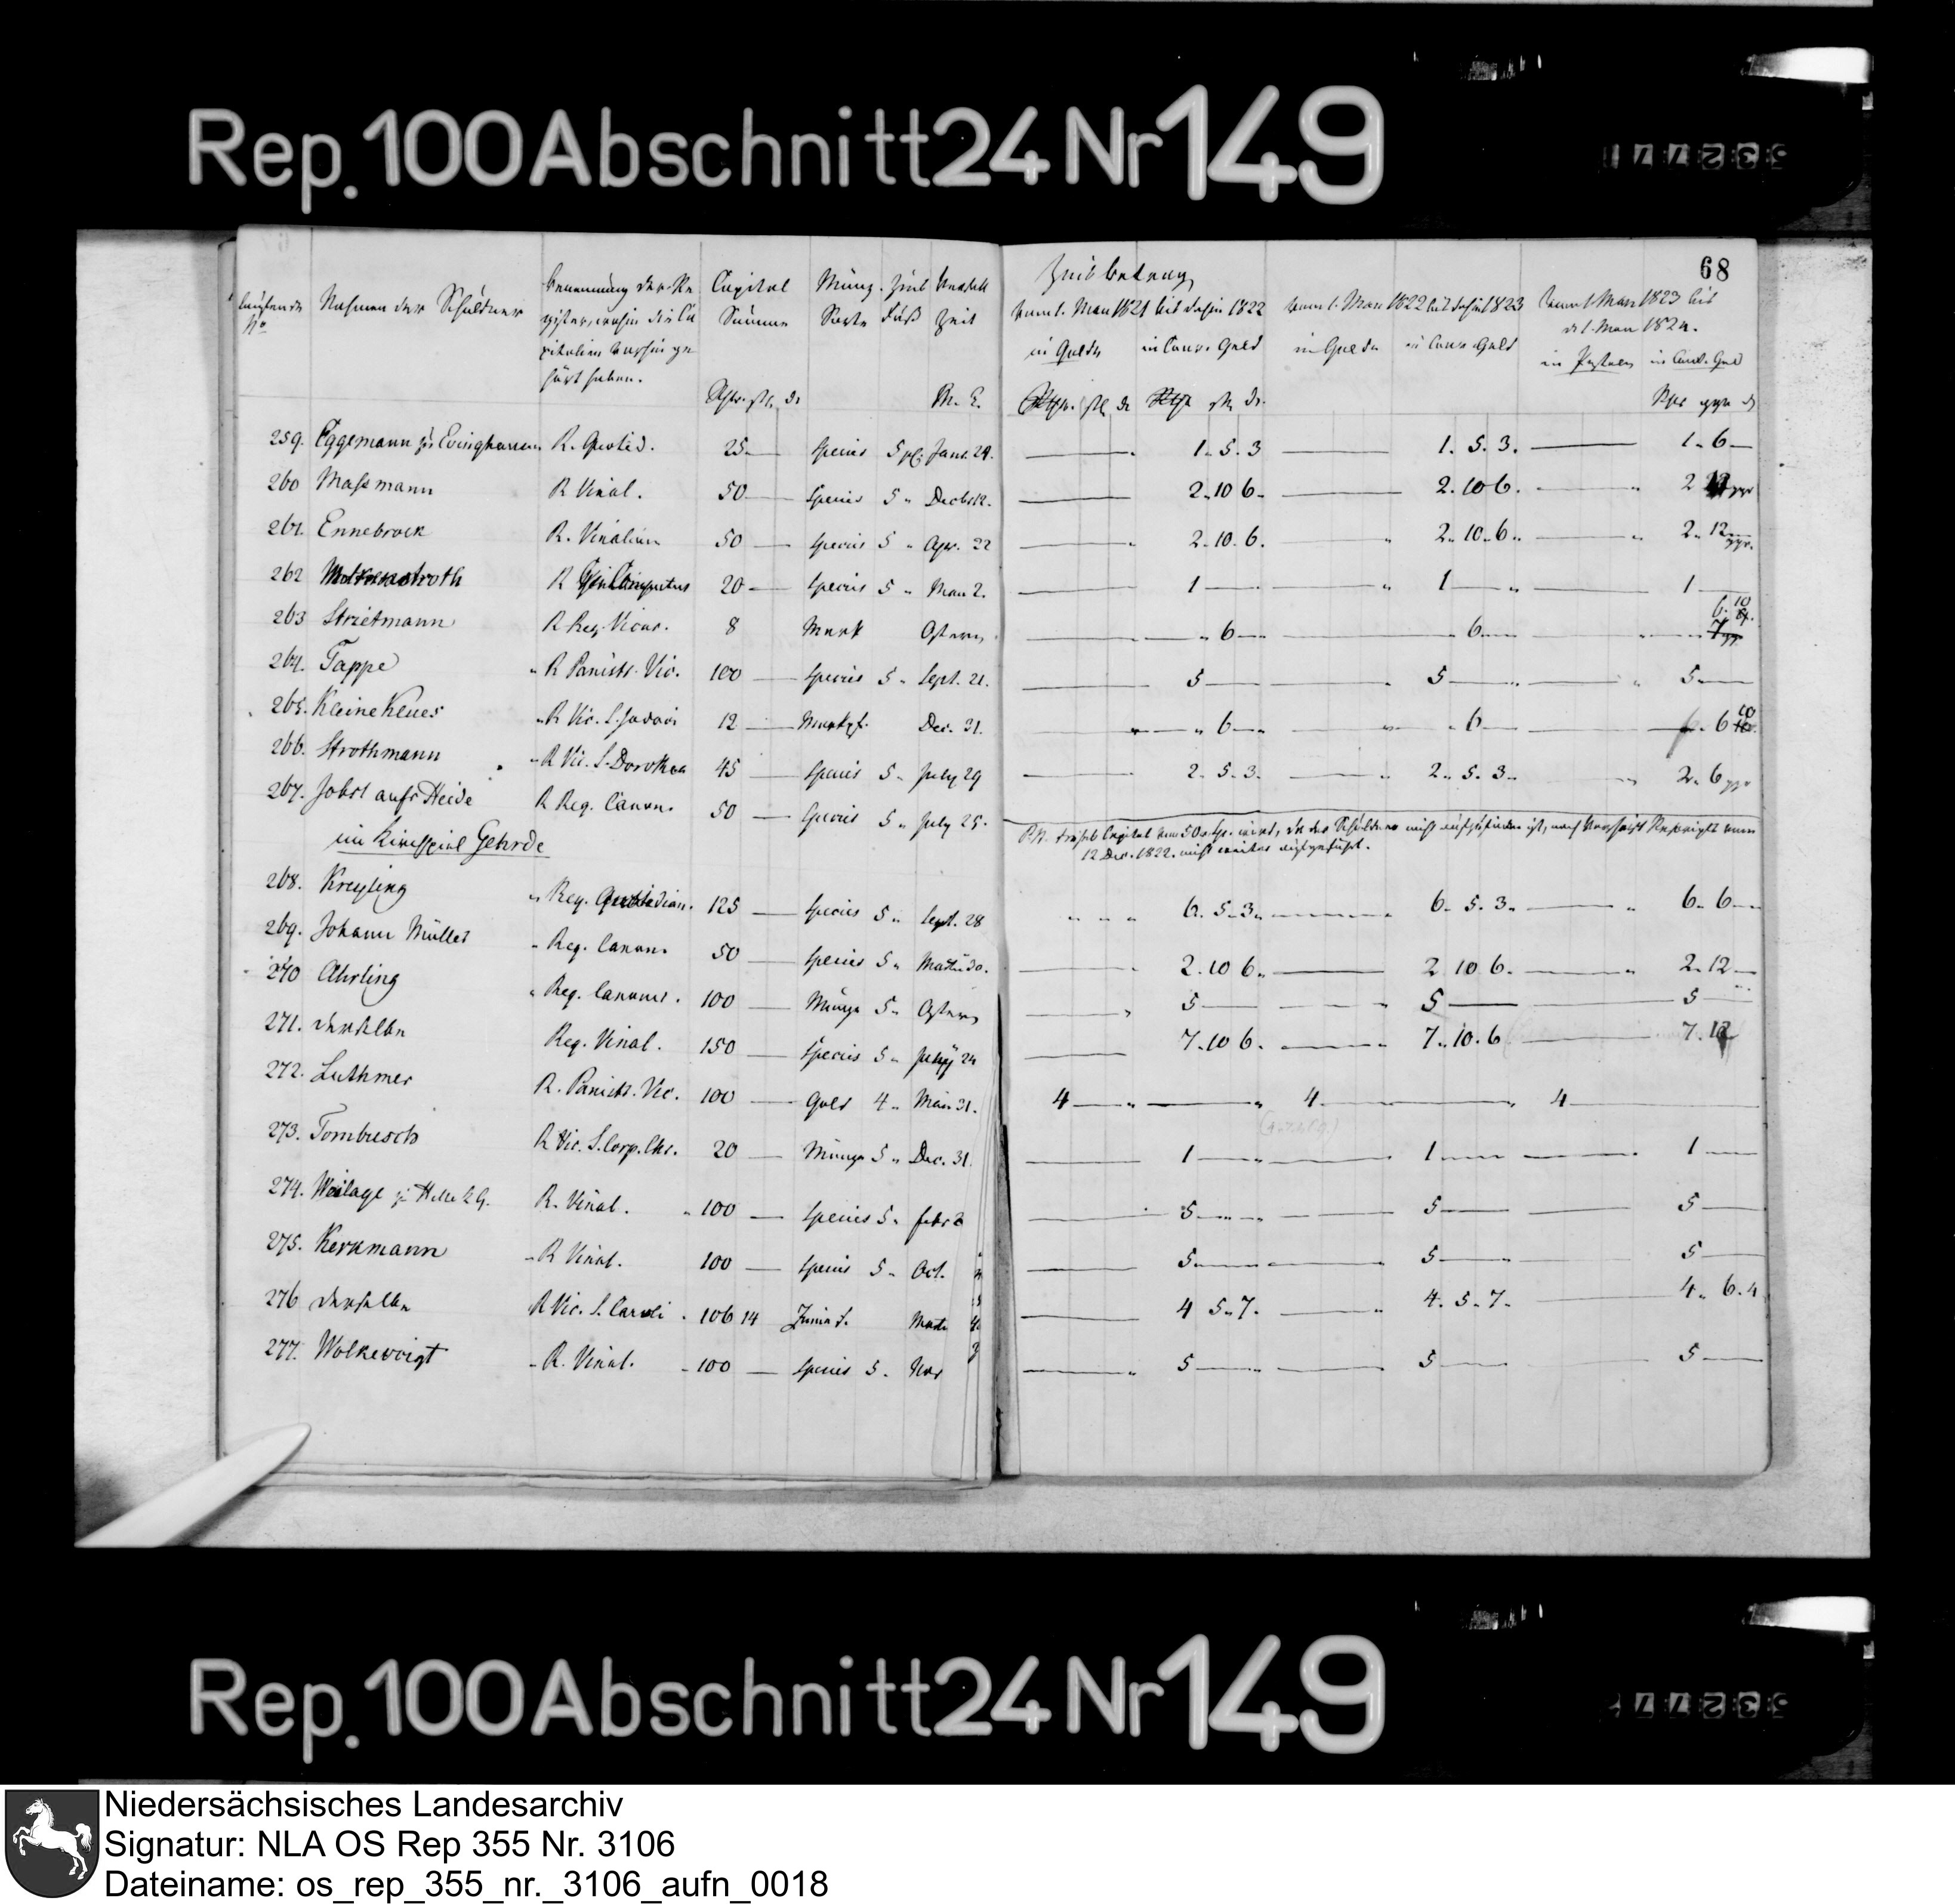 Rep. 100 Abschnitt 24 Nr 149
68
laufende Nahmen der Schuldner Benennung der Re Capital Münz- Zins Verfall Zinsbetrag
No gister, wohin die Ca Summe Sorte Fuß Zeit vom 1. May 1821 bis dahin 1822 vom 1. May 1822 bis dahin 1823 vom 1. May 1823 bis
pitalien bisher ge in Golde in Conv. Geld in Golde in Conv. Geld d. 1. May 1824.
hört haben. in Conv. Geld
259. Eggemann zu R. Quotid. 25 Species 5 Janr. 24. 1. 5. 3 1. 5. 3. 1. 6
260 Massmann R Vinal. 50 Species 5 " Decbr 12. 2. 10 6 2. 10 6. 2
261. Ennebrock R. Vinalium 50 Species 5 " Apr. 22 2. 10. 6. 2. 10. 6. 2. 12
262 R 20 Species 5 " May 2. 1 1 1
263 Strietmann R Reg. Vicar. 8 Mark Ostern 6 6 6. 10
264. Tappe R Panist. Vic. 100 Species 5 " Sept. 21. 5 5 5
265. Kleine Klues R Vic. S. 12 Markpf. Dec. 31. 6 6 6 10
266. Strothmann R Vic. S. Dorothea 45 Species 5 " July 29 2. 5. 3. 2. 5. 3. 2. 6
267. Jobst aufr Heide R Reg. Canon. 50 Species 5 " July 25.
NB. dieses Capital von 50 rt. Sp. wird, da der Schuldner nicht aufzufinden ist, nach Vorschrift Rescripts vom
12 Dec. 1822. nicht weiter aufgeführt.
im Kirchspiel Gehrde
268. Kreyling Reg. Quotidian. 125 Species 5 " Sept. 28 6. 5. 3. 6. 5. 3. 6. 6
269. Johann Müller Reg. Canon. 50 Species 5 " 2. 10 6. 2. 10 6. 2. 12
270 Ahrling Reg. Canon. 100 Münze 5 " Ostern 5 5 5
271. derselbe Reg. Vinal. 150 Species 5 " July 24 7. 10 6. 7. 10. 6 7. 12
272. Luthmer R. Panist. Vic. 100 Gold 4 " May 31. 4 4 4
273. Tombusch R Vic. S. Corp. Chr. 20 Münze 5 " Dec. 31. 1 1 1
274. Weilage zu Helle R. Vinal. 100 Species 5 " Febr 5 5 5
275. Kerkmann R Vinal. 100 Species 5 " Oct. 5 5 5
276 derselbe R Vic. S. 106 14 4 5. 7. 4. 5. 7. 4. 6. 4
277. Wolkevoigt R. Vinal. 100 Species 5 " Nov 5 5 5
Rep. 100 Abschnitt 24 Nr 149
Niedersächsisches Landesarchiv
Signatur: NLA OS Rep 355 Nr. 3106
Dateiname: os_rep_355_nr._3106_aufn_0018